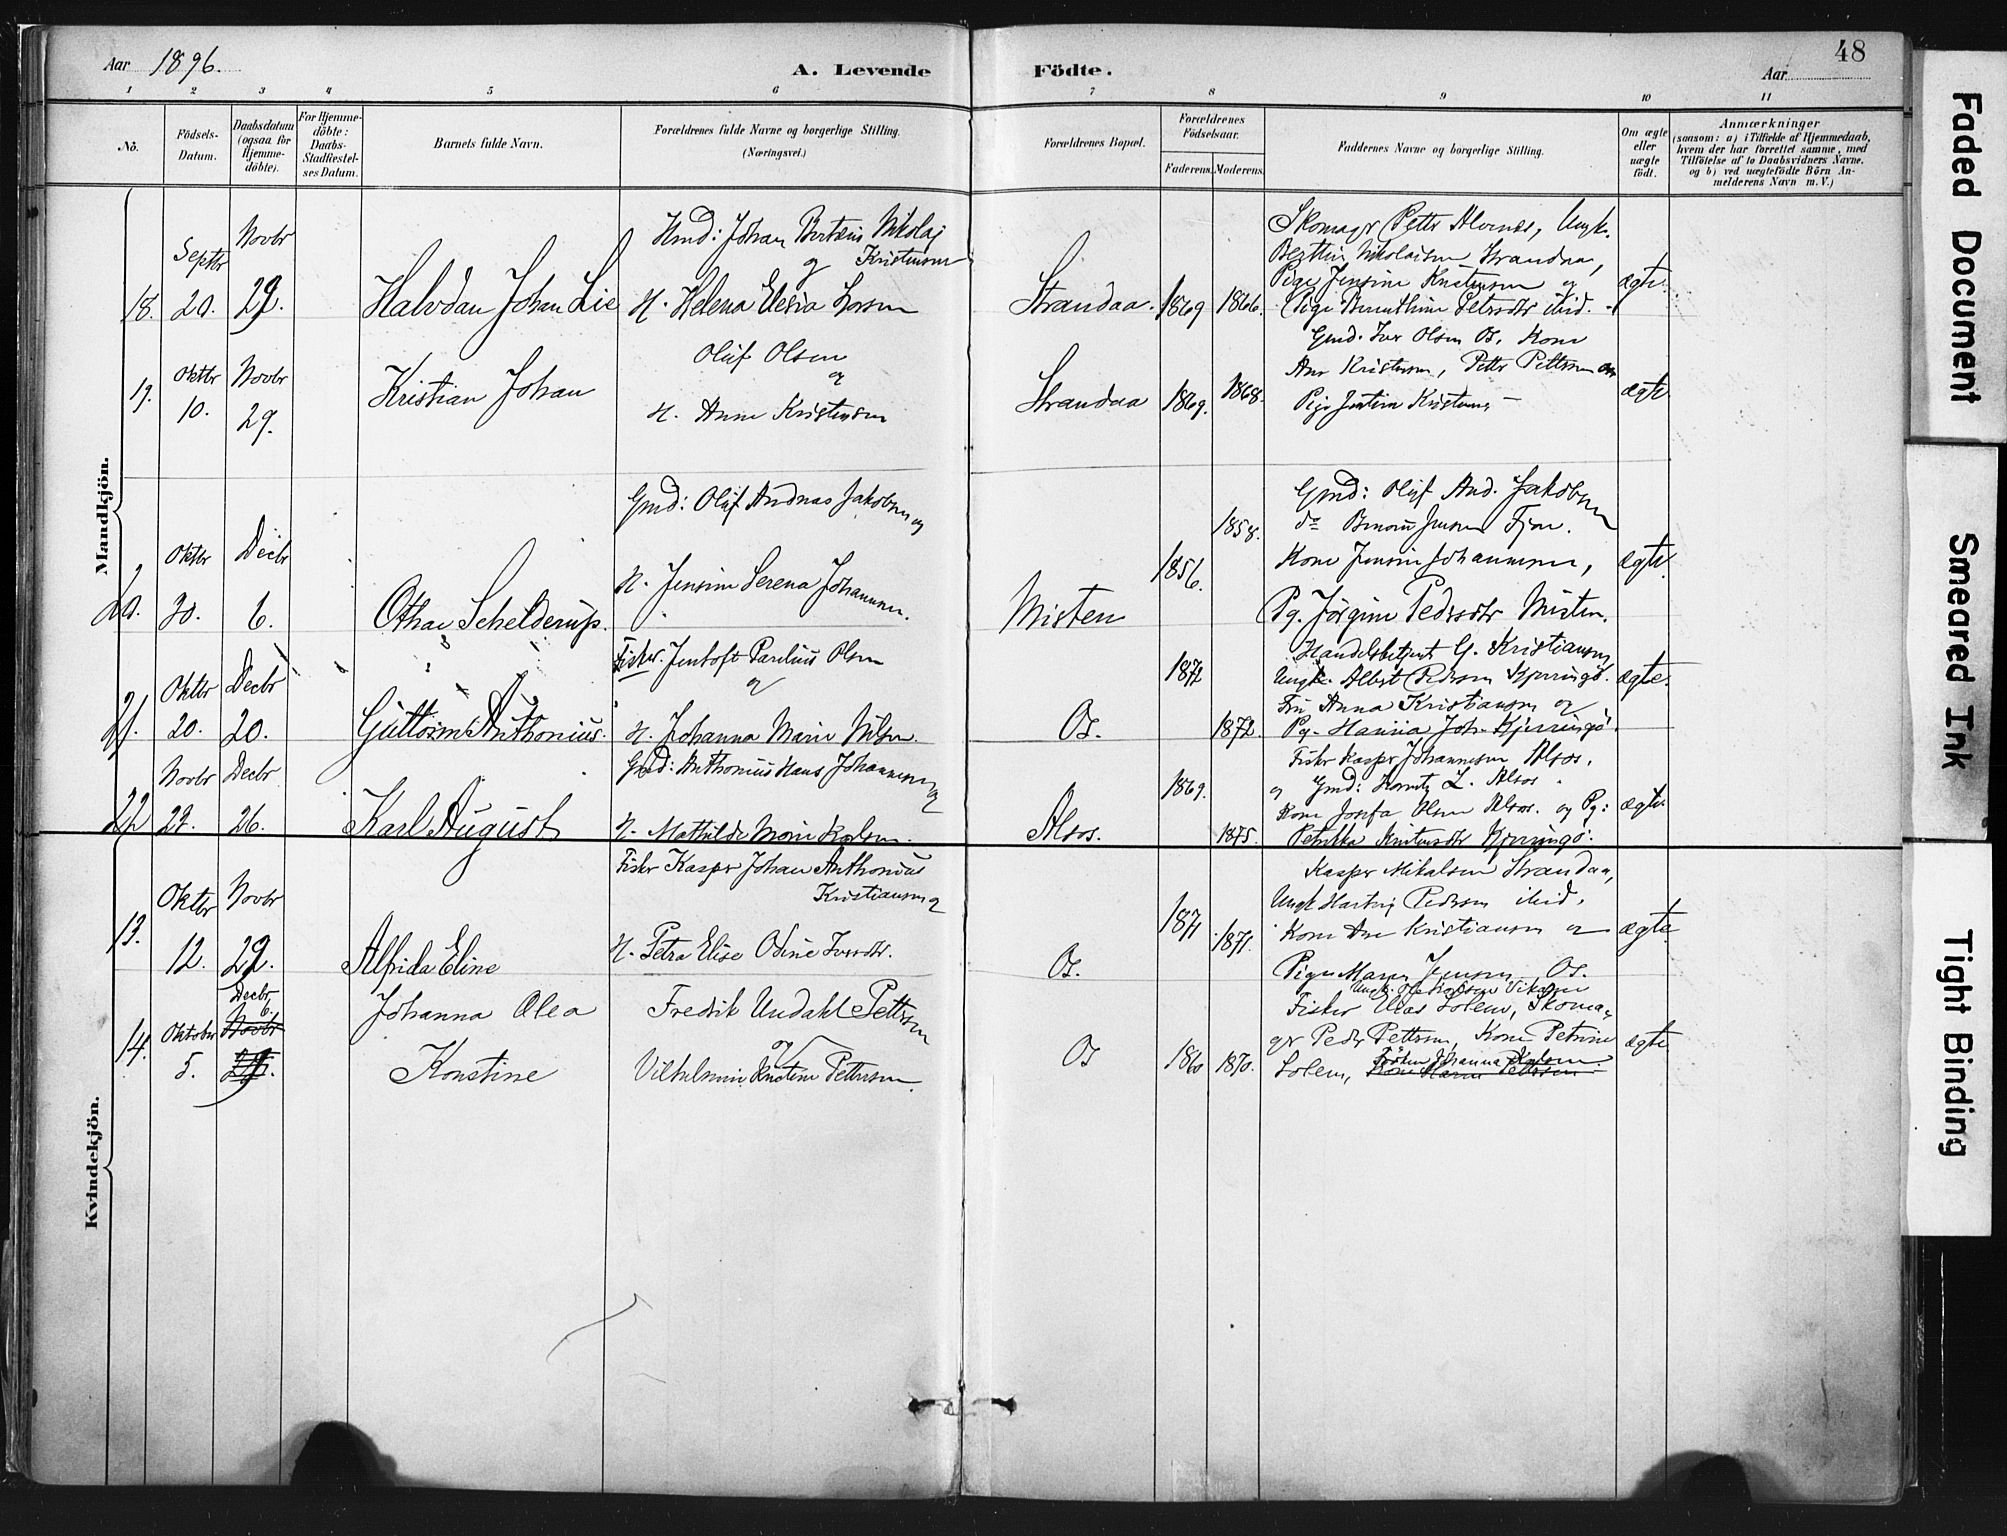 Aar 1896.
A. Levende Födte.
Aar
48
1 2 3 4 5 6 7 8 9 10 11
No.
Födsels-Datum.
Daabsdatum (ogsaa for Hjemmedöbte).
For Hjemmedöbte: Daabs-Stadfæstelses Datum.
Barnets fulde Navn.
Forældrenes fulde Navne og borgerlige Stilling. (Næringsvei.)
Forældrenes Bopæl.
Forældrenes Födselsaar.
Faderens. Moderens.
Faddernes Navne og borgerlige Stilling.
Om ægte eller uægte födt.
Anmærkninger
(saasom: a) i Tilfælde af Hjemmedaab,
hvem der har forrettet samme, med
Tilföielse af to Daabsvidners Navne.
og b) ved uægtefödte Börn An-
melderens Navn m. V.)
Mandkjön.
18. Septbr 20. Novbr 29.
Halvdan Johan Lie
Johan Nikolaj Kristensen
og
H. Helena
Strandaa. 1869 1866.
Skomagr Petter Alvenes, Ungk.
Nikolaisen Strandaa,
Pige Jensine Kristensen og
Pige Petersdtr ibid.
ægte.
19. Oktbr 10. Novbr 29.
Kristian Johan
Oluf Olsen
og
H. Anne Kristensen
Strandaa 1869. 1868.
Gmd. Iver Olsen Os, Kone
Ane Kristensen, Petter Pettersen og
Pige
ægte
20. Oktbr 30. Decbr 6.
Othar Schelderup.
Gmd: Oluf Andreas Jakobsen og
H. Jensine Serena Johannesen.
Misten 1856. 1858.
Gmd: Oluf And. Jakobsen
do Jensen Fjære.
Kone Jensine Johannesen,
Pg. Jörgine Pedersdtr Misten.
ægte.
21. Oktbr 20. Decbr 20.
Guttorm Anthonius.
Fisker. Jentoft Parelius Olsen
og
H. Johanna Marie Nilsen.
Os. 1872 1872.
Handelsbetjent G. Kristiansen
Ungk. Albert Pedersen Kjerringö.
Fru Anna Kristiansen og
Pg. Hanna Joh. Kjerringö.
ægte.
22 Novbr 22. Decbr 26.
Karl August
Gmd: Anthonius Hans Johannesen og
H. Mathilde Marie Karlsen.
Alsos. 1869. 1875.
Fisker Kasper Johannesen Alsos,
og Gmd: L. Alsos
Kone Josefa Olsen Alsos. og Pg:
Kjerringö.
ægte.
Kvindekjön.
13. Oktbr 12. Novbr 29.
Alfrida Eline
Fisker Kasper Johan Anthonius
Kristiansen og
H. Petra Elise Odine Iversdtr.
Os. 1871 1871.
Kasper Mikalsen Strandaa,
Ungk Hartvig Pedersen ibid,
Kone Ane Kristiansen og
Pige Maren Jensen, Os.
ægte.
14. Oktober 5. Decbr 6. Novbr 29.
Johanna Olea
Konstine
Fredrik Undahl Pettersen
og
Vilhelmine Kristine Pettersen.
Os 1860 1870.
Fisker Elias Solem, Skoma-
ger Peder Pettersen, Kone Petrine
Solem, Fröken Johanna
Kone Maren Pettersen.
ægte.
Faded Document
Smeared Ink
Tight Binding